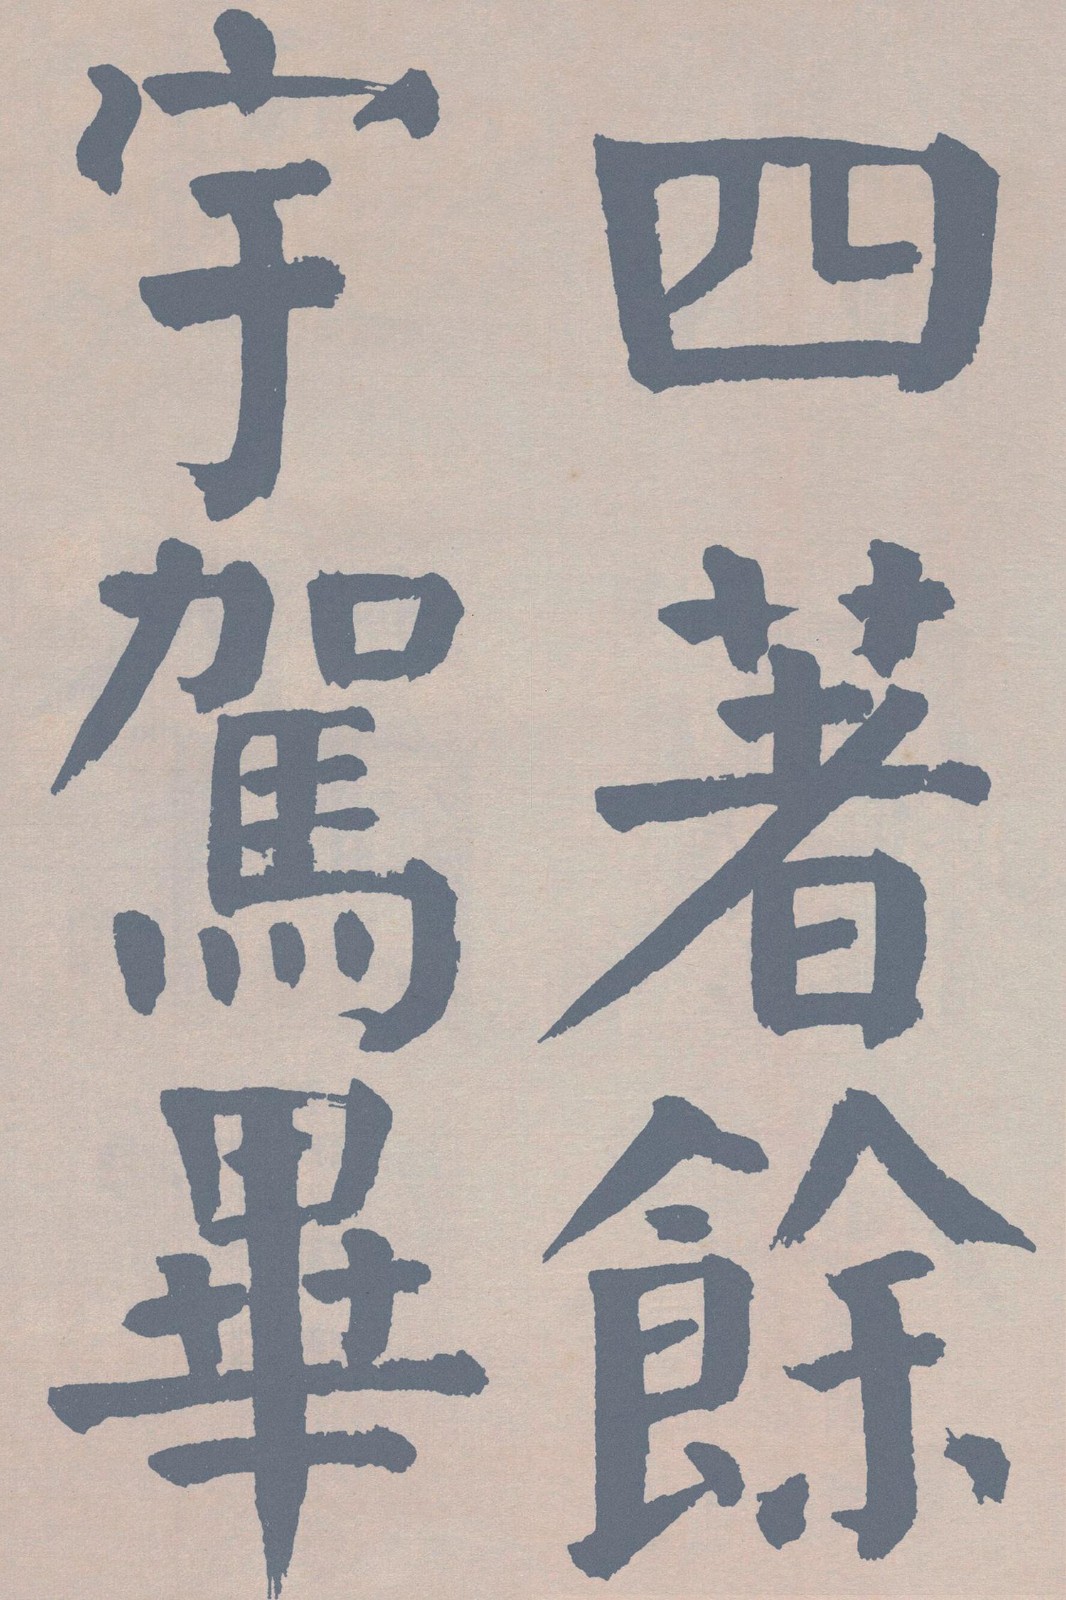 四著餘
宇駕畢